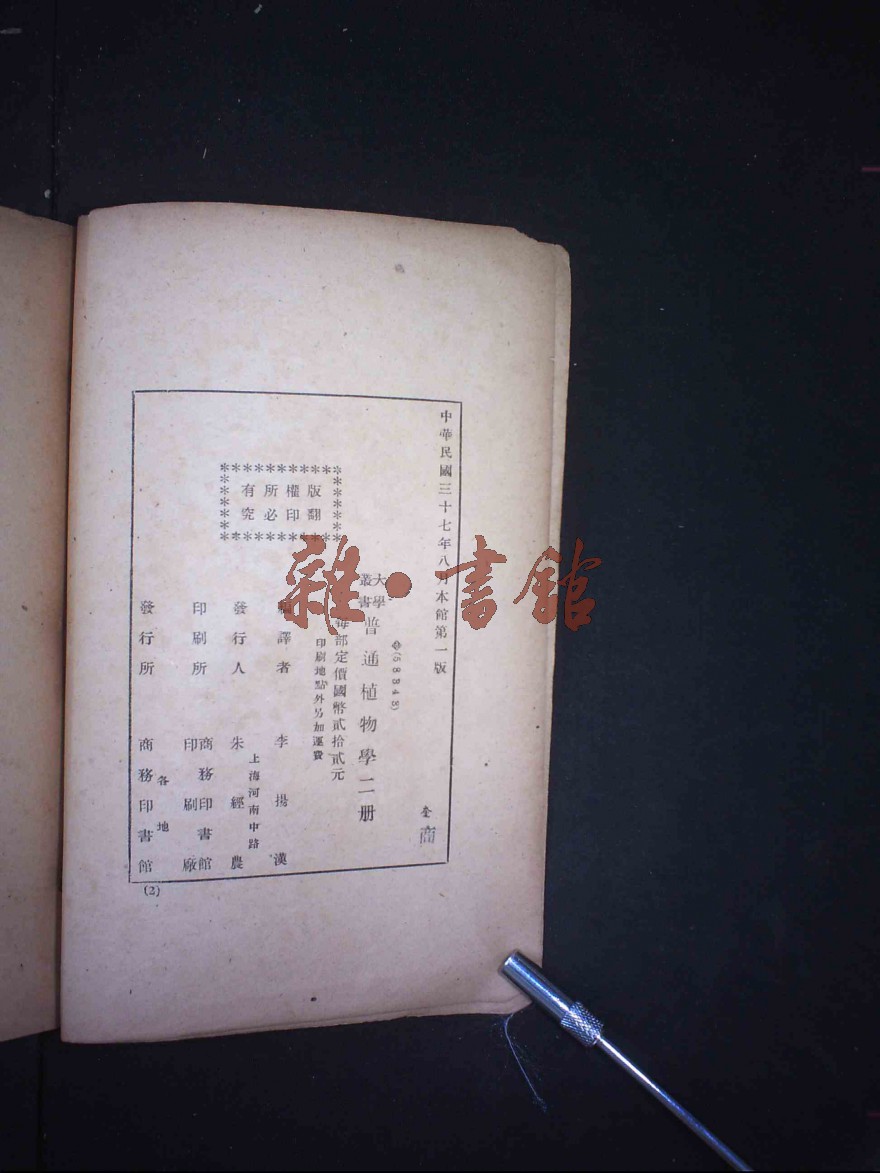 中華民國三十七年八月本館第一版
(58848)
大學叢書 普通植物學二册
每部定價國幣貳拾貳元
印刷地點外另加運費
版權所有
翻印必究
編譯者 李揚漢
發行人 朱經農
上海河南中路
印刷所 商務印書館印刷廠
發行所 商務印書館
各地
(2)
商
雜·書館